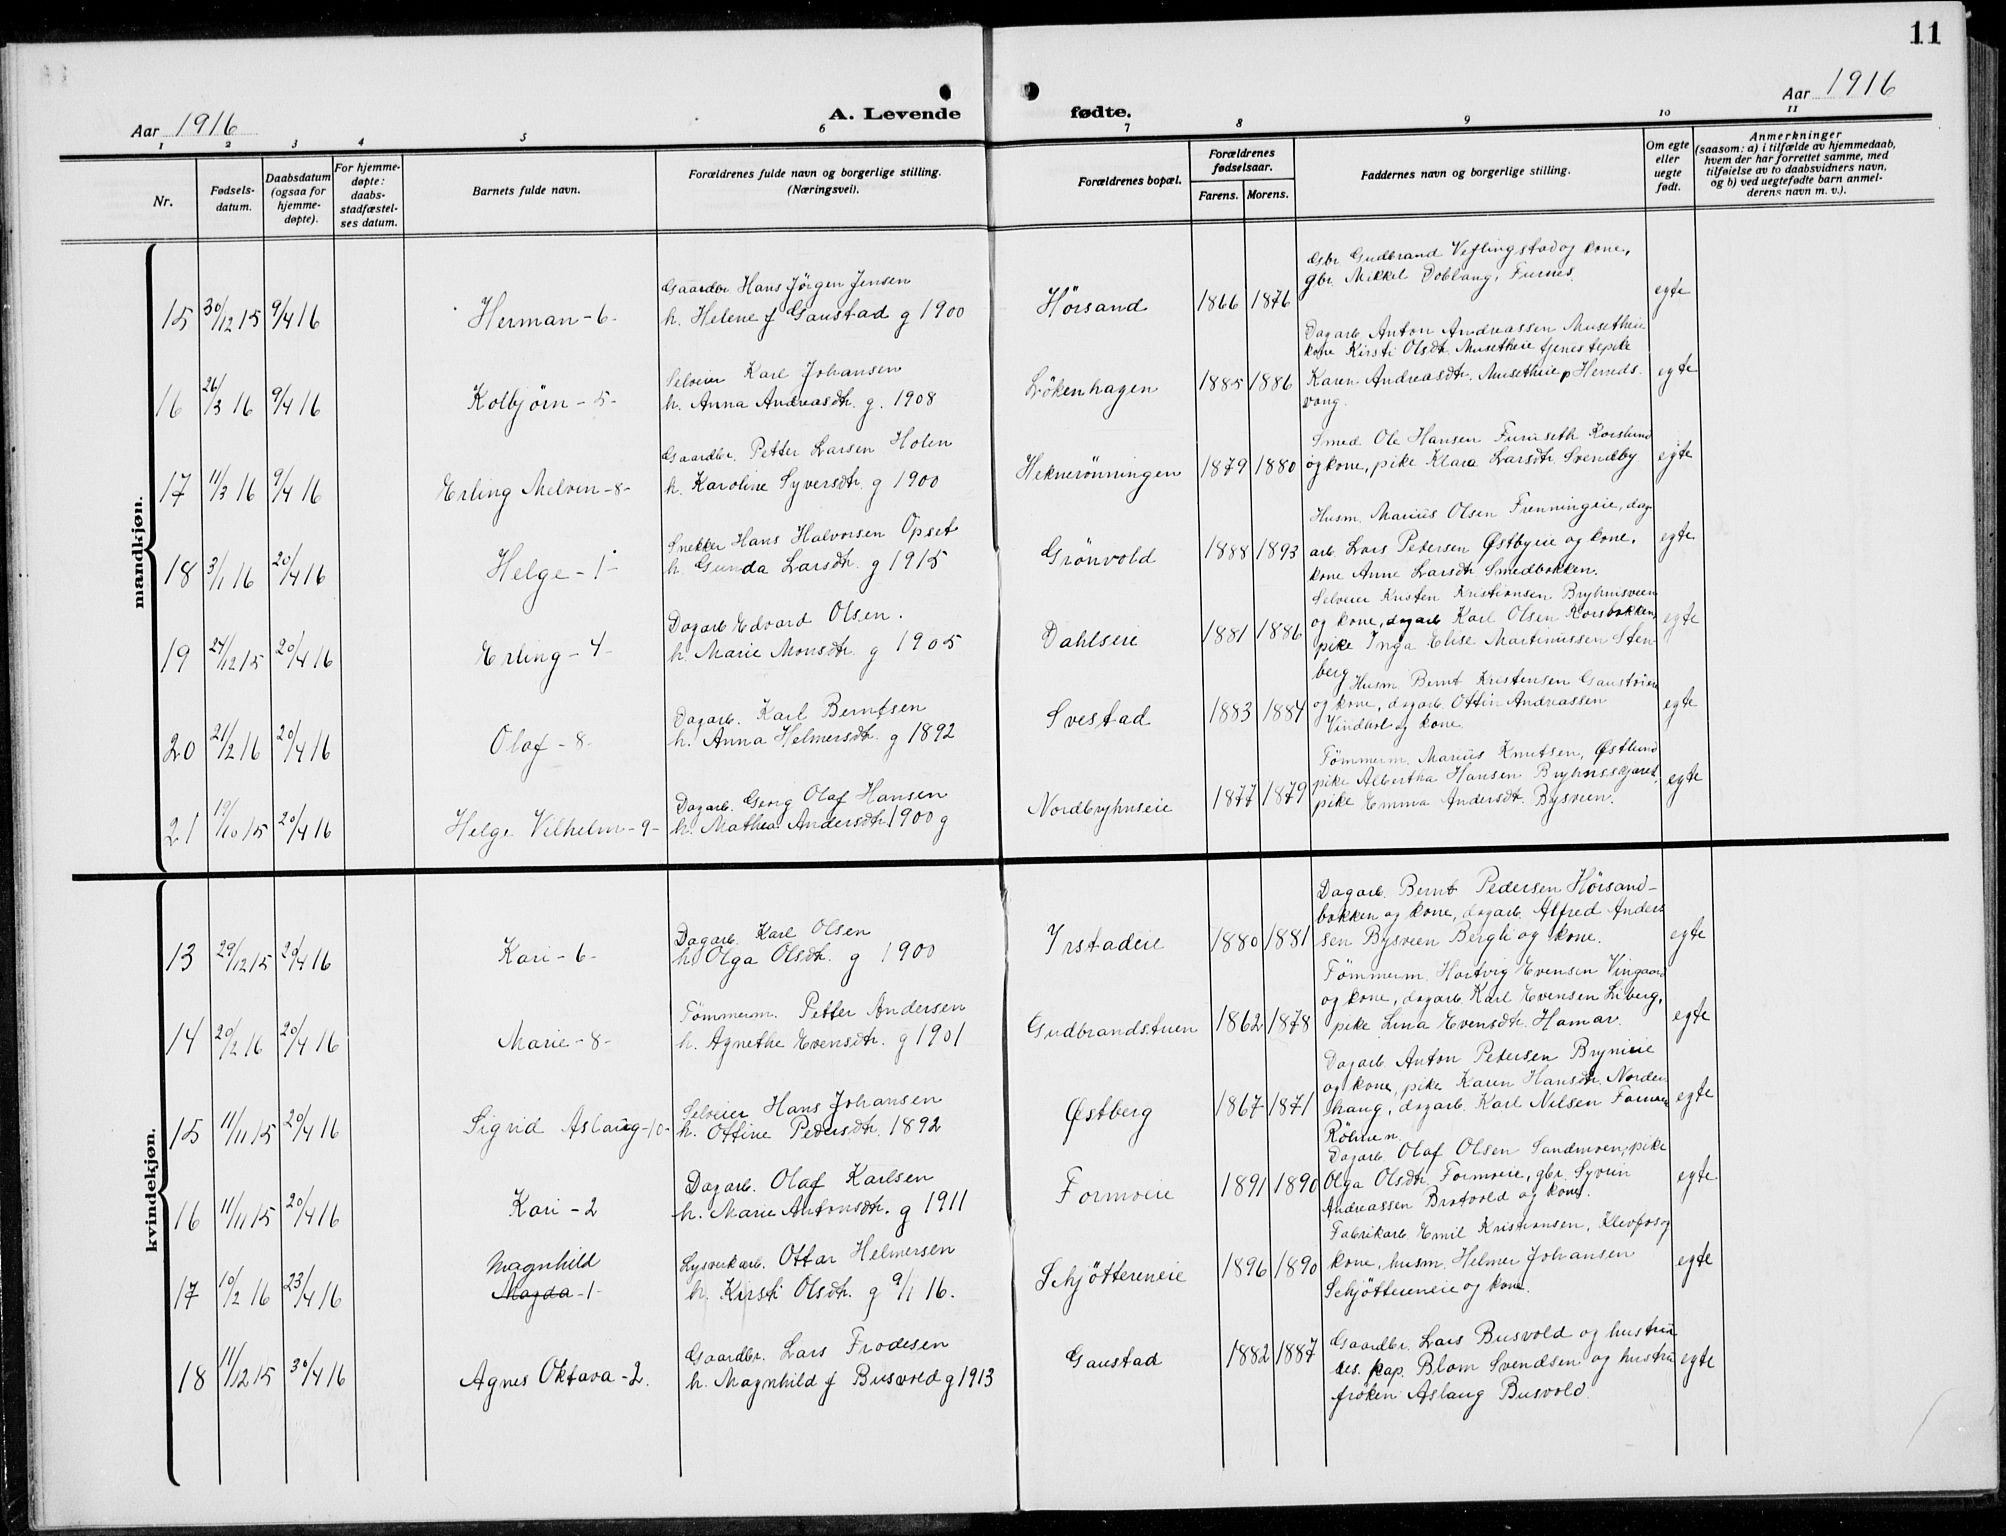 11
Aar 1916 A. Levende fødte. Aar 1916
1 2 3 4 5 6 7 8 9 10 11
Nr.
Fødsels-
datum.
Daabsdatum
(ogsaa for
hjemme-
døpte).
For hjemme-
døpte:
daabs-
stadfæstel-
ses datum.
Barnets fulde navn.
Forældrenes fulde navn og borgerlige stilling.
(Næringsvei).
Forældrenes bopæl.
Forældrenes
fødselsaar.
Farens. Morens.
Faddernes navn og borgerlige stilling.
Om egte
eller
uegte
født.
Anmerkninger
(saasom: a) i tilfælde av hjemmedaab,
hvem der har forrettet samme, med
tilføielse av to daabsvidners navn,
og b) ved uegtefødte barn anmel-
derens navn m. v.).
mandkjøn.
15 30/12 15 9/4 16 Herman - 6 -
Gaardbr. Hans Jørgen Jensen
h. Helene f Gaustad g 1900
Hørsand 1866 1876
Gbr Gudbrand Veflingstad og kone,
gbr. Mikkel Doblang, Furnes.
egte
16 26/3 16 9/4 16 Kolbjörn - 5 -
Selveier Karl Johansen
h. Anna Andreasdtr. g. 1908
Lökenhagen 1885 1886
Dagarb. Anton Andreassen Musetheie
kone Kirsti Olsdtr. Musetheie tjenestepike
Karen Andreasdtr. Musetheie p Herreds-
vang.
egte
17 11/3 16 9/4 16 Erling Melvin - 8 -
Gaardbr. Petter Larsen Holen
h. Karoline Syversdtr. g 1900
Heknerönningen 1879 1880
Smed Ole Hansen Furuseth Korslund
og kone, pike Klara Larsdtr. Svendby
egte
18 3/1 16 20/4 16 Helge - 1 -
Snekker Hans Halvorsen Opset
h. Gunda Larsdtr. g 1915
Grönvold 1888 1893
Husm. Marius Olsen Frenningeie, dag-
arb Lars Pedersen Østbyeie og kone,
kone Anne Larsdtr Smedbakken.
egte
19 24/12 15 20/4 16 Erling - 4 -
Dagarb Edvard Olsen.
h. Marie Monsdtr. g 1905
Dahlseie 1881 1886
Selveier Kristen Kristiansen Bryhnisveen
og kone, dagarb. Karl Olsen Korsbakken,
pike Inga Elise Martinussen Sten-
berg
egte
20 21/2 16 20/4 16 Olaf - 8 -
Dagarb. Karl Berntsen
h. Anna Helmersdtr. g 1892
Svestad 1883 1884
Husm. Bernt Kristensen Gaustadeie
og kone, dagarb. Ottin Andreassen
og kone
egte
21 19/10 15 20/4 16 Helge Vilhelm - 9 -
Dagarb. Georg Olaf Hansen
h. Mathea Andersdtr 1900 g
Nordbryhnseie 1877 1879
Tömmerm. Marius Knutsen, Østlund
pike Albertha Hansen Bryhnsskjaret,
pike Emma Andersdtr. Bysveen.
egte
kvindekjøn.
13 29/12 15 20/4 16 Kari - 6 -
Dagarb. Karl Olsen
h. Olga Olsdtr. g 1900
Irstadeie 1880 1881
Dagarb. Bernt Pedersen Hörsand-
bakken og kone, dagarb. Alfred Ander-
sen Bysveen Bergli og kone.
egte
14 20/2 16 20/4 16 Marie - 8 -
Tömmerm. Petter Andersen
h. Agnethe Evensdtr. g 1901
Gudbrandstuen 1862 1878
Tömmerm. Hartvig Evensen Vingaard
og kone, dagarb Karl Evensen Liberg,
pike Lina Evensdtr. Hamar.
egte
15 11/11 15 20/4 16 Sigrid Aslaug - 10 -
Selveier Hans Johansen
h. Ottine Pedersdtr. 1892
Østberg 1867 1871
Dagarb Anton Pedersen Brynieie
og kone, pike Karen Hansdtr. Norden-
haug, dagarb. Karl Nilsen

egte
16 11/11 15 20/4 16 Kari - 2
Dagarb. Olaf Karlsen
h. Marie Antonsdtr. g 1911
Formoeie 1891 1890
Dagarb Olaf Olsen Sandmoen, pike
Olga Olsdtr. Formoeie, gbr. Syverin
Andreassen Bratvold og kone.
egte
17 10/2 16 23/4 16 Magnhild
Magda - 1 -
Lysverkarb. Ottar Helmersen
h. Kirsti Olsdtr. g 9/1 16.
Schjöttereneie 1896 1890
Fabrikarb Emil Kristiansen, Klevfos og
kone, husm. Helmer Johansen
Schjöttereneie og kone.
egte
18 11/12 15 30/4 16 Agnes Oktava - 2.
Gaardbr. Lars Frodesen
h. Magnhild f Busvold g 1913
Gaustad 1882 1887
Gaardbr. Lars Busvold og hustru
res. kap. Blom Svendsen og hustru
frøken Aslaug Busvold.
egte